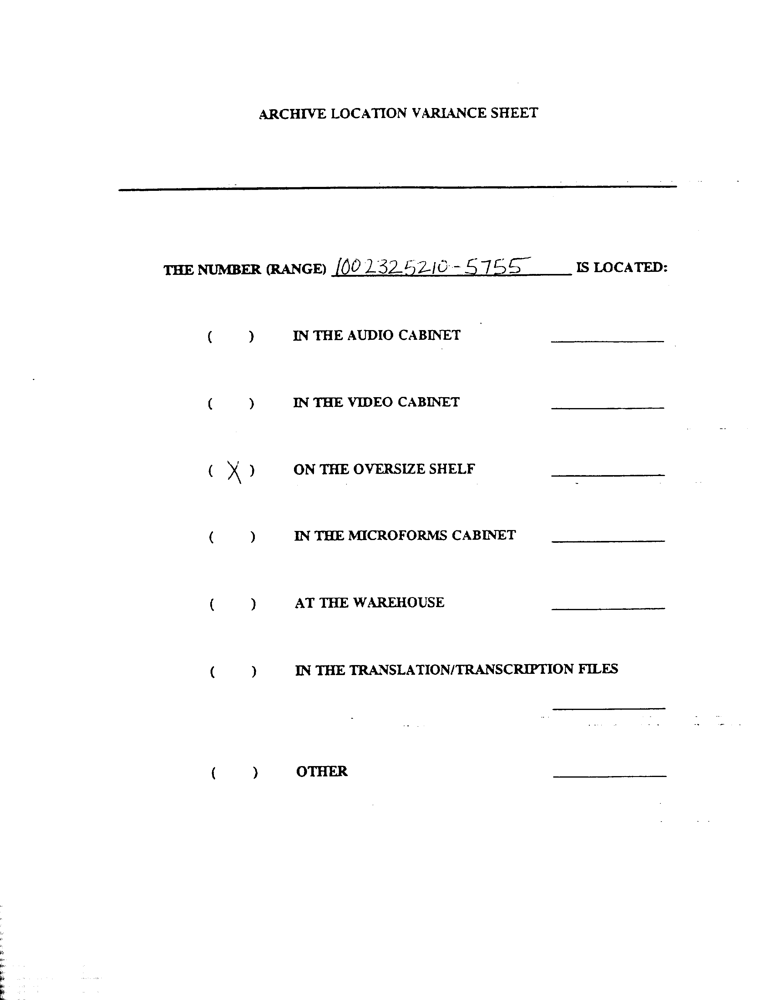 ARCHIVE LOCATION VARIANCE SHEET
THE NUMBER (RANGE) 1002325210-5755 IS LOCATED:
( ) IN THE AUDIO CABINET
( ) IN THE VIDEO CABINET
( X ) ON THE OVERSIZE SHELF
( ) IN THE MICROFORMS CABINET
( ) AT THE WAREHOUSE
( ) IN THE TRANSLATION/TRANSCRIPTION FILES
( ) OTHER